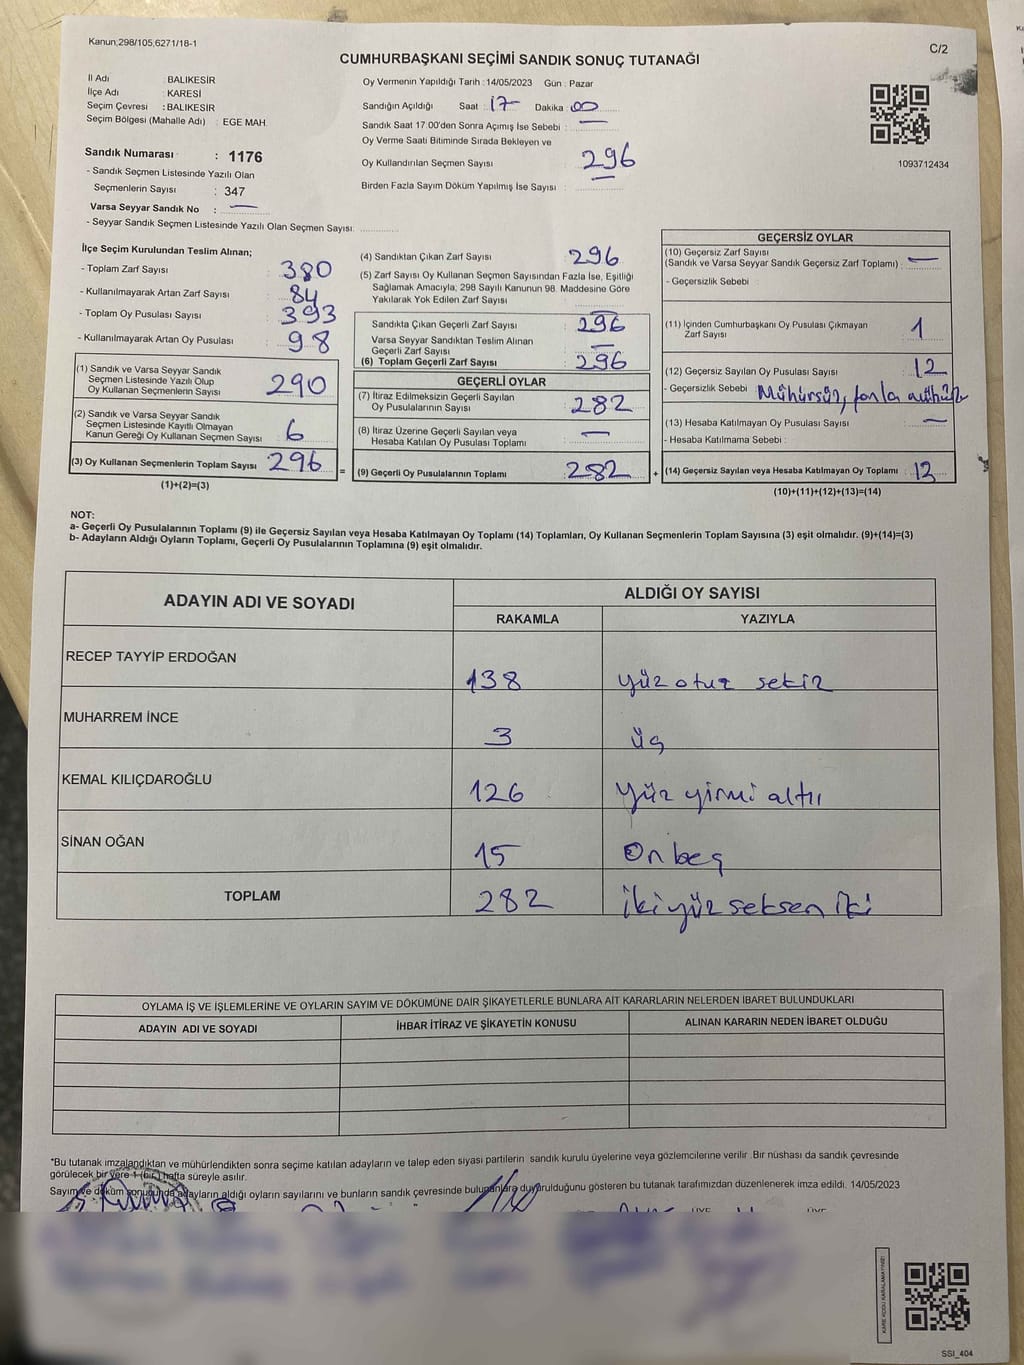 Kanun;298/105,6271/18-1
C/2
CUMHURBAŞKANI SEÇİMİ SANDIK SONUÇ TUTANAĞI
İl Adı : BALIKESİR
İlçe Adı : KARESİ
Seçim Çevresi : BALIKESİR
Seçim Bölgesi (Mahalle Adı) : EGE MAH.
Sandık Numarası : 1176
- Sandık Seçmen Listesinde Yazılı Olan
Seçmenlerin Sayısı : 347
Varsa Seyyar Sandık No : —
- Seyyar Sandık Seçmen Listesinde Yazılı Olan Seçmen Sayısı:
Oy Vermenin Yapıldığı Tarih : 14/05/2023 Gün : Pazar
Sandığın Açıldığı Saat : 17 Dakika : 00
Sandık Saat 17:00'den Sonra Açımış İse Sebebi : —
Oy Verme Saati Bitiminde Sırada Bekleyen ve
Oy Kullandırılan Seçmen Sayısı : 296
Birden Fazla Sayım Döküm Yapılmış İse Sayısı : —
1093712434
İlçe Seçim Kurulundan Teslim Alınan;
- Toplam Zarf Sayısı : 380
- Kullanılmayarak Artan Zarf Sayısı : 84
- Toplam Oy Pusulası Sayısı : 393
- Kullanılmayarak Artan Oy Pusulası : 98
(1) Sandık ve Varsa Seyyar Sandık
Seçmen Listesinde Yazılı Olup
Oy Kullanan Seçmenlerin Sayısı : 290
(2) Sandık ve Varsa Seyyar Sandık
Seçmen Listesinde Kayıtlı Olmayan
Kanun Gereği Oy Kullanan Seçmen Sayısı : 6
(3) Oy Kullanan Seçmenlerin Toplam Sayısı : 296
(1)+(2)=(3)
(4) Sandıktan Çıkan Zarf Sayısı : 296
(5) Zarf Sayısı Oy Kullanan Seçmen Sayısından Fazla İse, Eşitliği
Sağlamak Amacıyla, 298 Sayılı Kanunun 98. Maddesine Göre
Yakılarak Yok Edilen Zarf Sayısı :
Sandıkta Çıkan Geçerli Zarf Sayısı : 296
Varsa Seyyar Sandıktan Teslim Alınan
Geçerli Zarf Sayısı : —
(6) Toplam Geçerli Zarf Sayısı : 296
GEÇERLİ OYLAR
(7) İtiraz Edilmeksizin Geçerli Sayılan
Oy Pusulalarının Sayısı : 282
(8) İtiraz Üzerine Geçerli Sayılan veya
Hesaba Katılan Oy Pusulası Toplamı : —
= (9) Geçerli Oy Pusulalarının Toplamı : 282
GEÇERSİZ OYLAR
(10) Geçersiz Zarf Sayısı
(Sandık ve Varsa Seyyar Sandık Geçersiz Zarf Toplamı) : —
- Geçersizlik Sebebi :
(11) İçinden Cumhurbaşkanı Oy Pusulası Çıkmayan
Zarf Sayısı : 1
(12) Geçersiz Sayılan Oy Pusulası Sayısı : 12
- Geçersizlik Sebebi : Mühürsüz, fazla mühür
(13) Hesaba Katılmayan Oy Pusulası Sayısı : —
- Hesaba Katılmama Sebebi :
+ (14) Geçersiz Sayılan veya Hesaba Katılmayan Oy Toplamı :
(10)+(11)+(12)+(13)=(14)
NOT:
a- Geçerli Oy Pusulalarının Toplamı (9) ile Geçersiz Sayılan veya Hesaba Katılmayan Oy Toplamı (14) Toplamları, Oy Kullanan Seçmenlerin Toplam Sayısına (3) eşit olmalıdır. (9)+(14)=(3)
b- Adayların Aldığı Oyların Toplamı, Geçerli Oy Pusulalarının Toplamına (9) eşit olmalıdır.
ADAYIN ADI VE SOYADI
ALDIĞI OY SAYISI
RAKAMLA YAZIYLA
RECEP TAYYİP ERDOĞAN 138 yüz otuz sekiz
MUHARREM İNCE 3 üç
KEMAL KILIÇDAROĞLU 126 yüz yirmi altı
SİNAN OĞAN 15 On beş
TOPLAM 282 iki yüz seksen iki
OYLAMA İŞ VE İŞLEMLERİNE VE OYLARIN SAYIM VE DÖKÜMÜNE DAİR ŞİKAYETLERLE BUNLARA AİT KARARLARIN NELERDEN İBARET BULUNDUKLARI
ADAYIN ADI VE SOYADI İHBAR İTİRAZ VE ŞİKAYETİN KONUSU ALINAN KARARIN NEDEN İBARET OLDUĞU
*Bu tutanak imzalandıktan ve mühürlendikten sonra seçime katılan adayların ve talep eden siyasi partilerin sandık kurulu üyelerine veya gözlemcilerine verilir .Bir nüshası da sandık çevresinde
görülecek bir yere 1 (bir) hafta süreyle asılır.
Sayım ve döküm sonucunda adayların aldığı oyların sayılarını ve bunların sandık çevresinde bulunanlara duyurulduğunu gösteren bu tutanak tarafımızdan düzenlenerek imza edildi. 14/05/2023
ÜYE ÜYE
KARE KODU KARALAMAYINIZ!
SSI_404